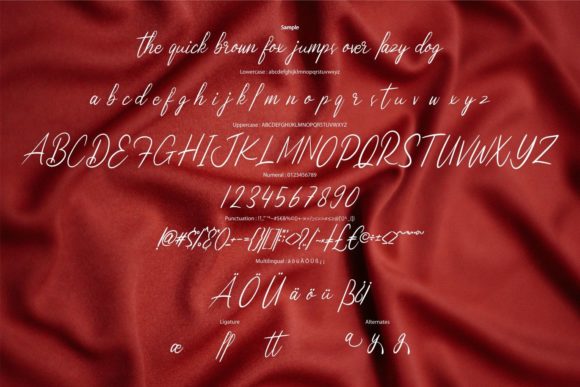 Sample
the quick broun fox jumps over lazy dog
Lowercase : abcdefghijklmnopqrstuvwxyz
a b c d e f g h i j k l m n o p q r s t u v w x y z
Uppercase : ABCDEFGHIJKLMNOPQRSTUVWXYZ
ABCDEFGHIJKLMNOPQRSTUVWXYZ
Numeral : 0123456789
1234567890
Punctuation :
Multilingual : ä ö ü Ä Ö Ü ß ¿ ¡
ÄÖÜ ä ö ü ß¿¡
Ligature Alternates
æ ff tt